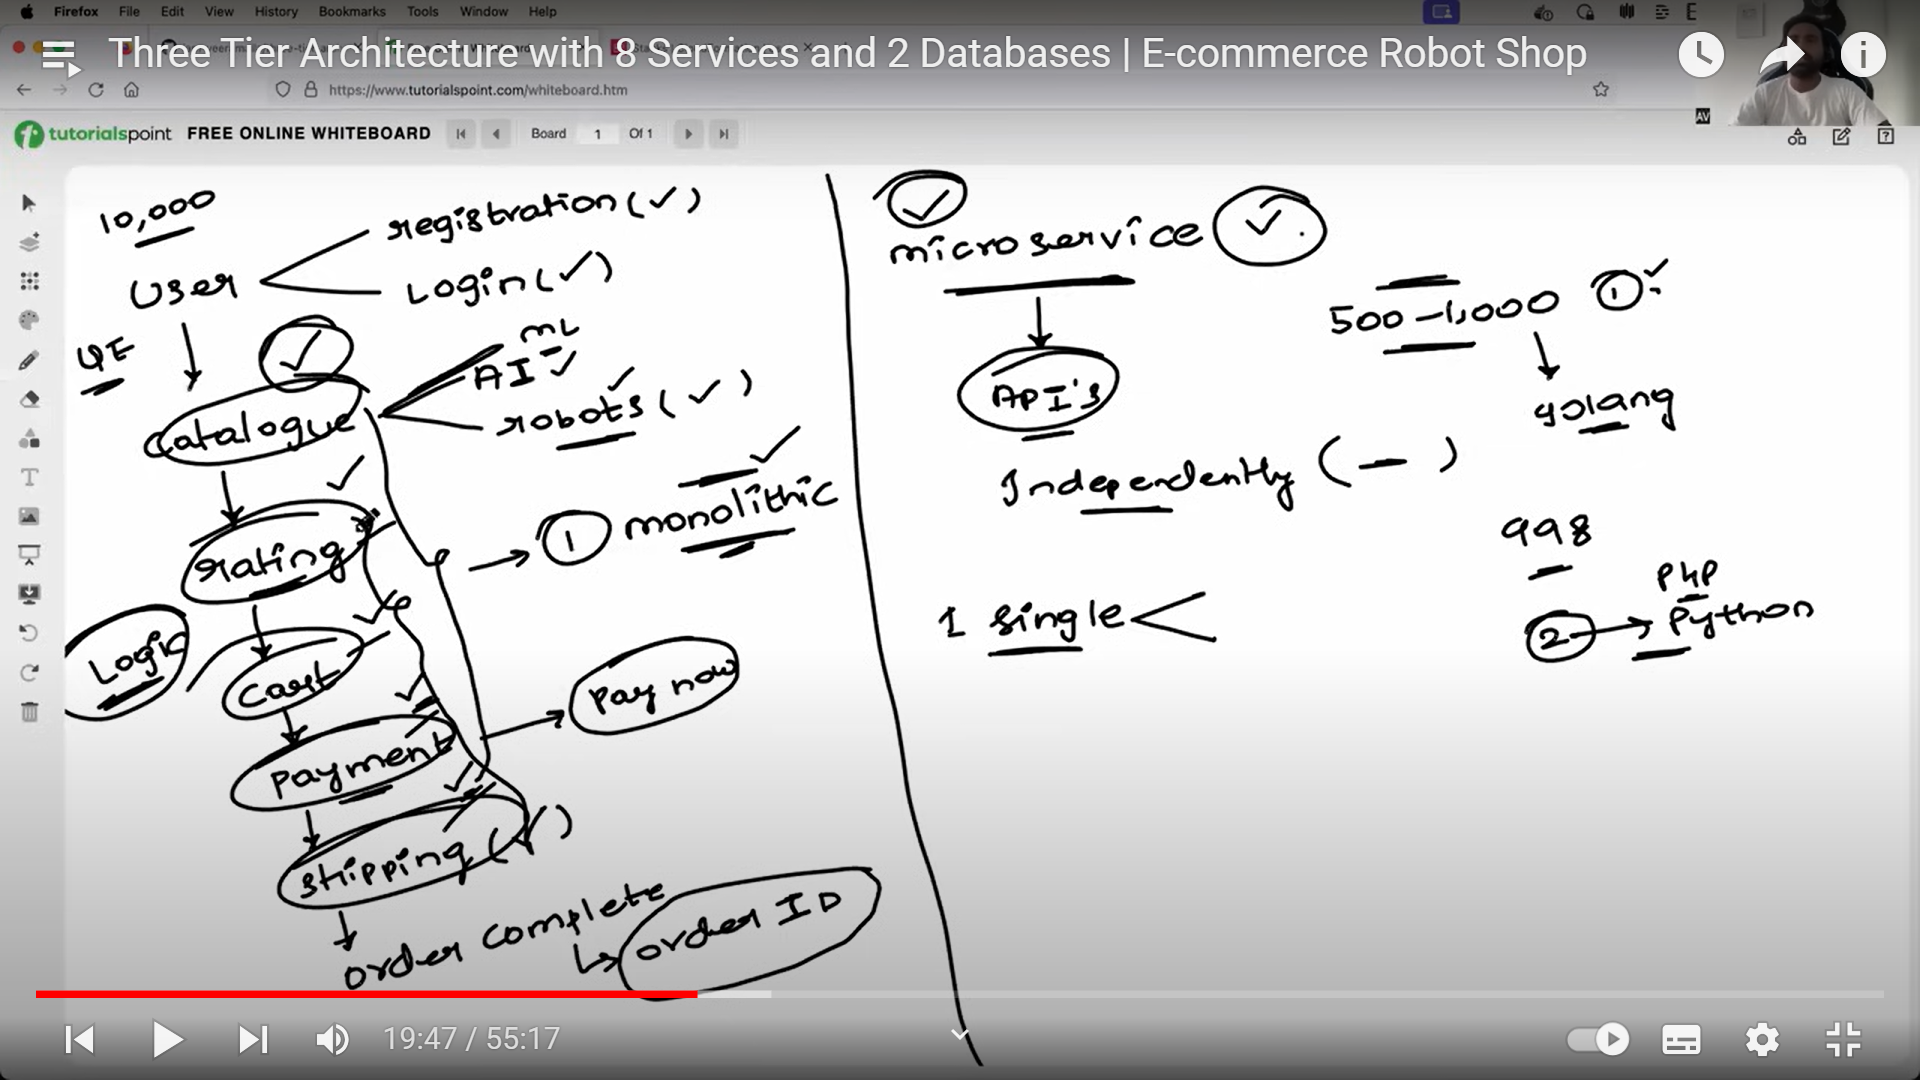 Firefox File Edit View History Bookmarks Tools Window Help
Three Tier Architecture with 8 Services and 2 Databases | E-commerce Robot Shop
https://www.tutorialspoint.com/whiteboard.htm
AV
tutorialspoint FREE ONLINE WHITEBOARD Board 1 Of 1
10,000
User
registration (✓)
Login (✓)
UI
catalogue
AI ✓
ML
robots (✓)
rating
1 monolithic
Logic
cart
Pay now
payment
shipping (✓)
order complete
order ID
microservice
API's
Independently ( — )
1 single
500 – 1,000 1
golang
998
PHP
2 → Python
19:47 / 55:17